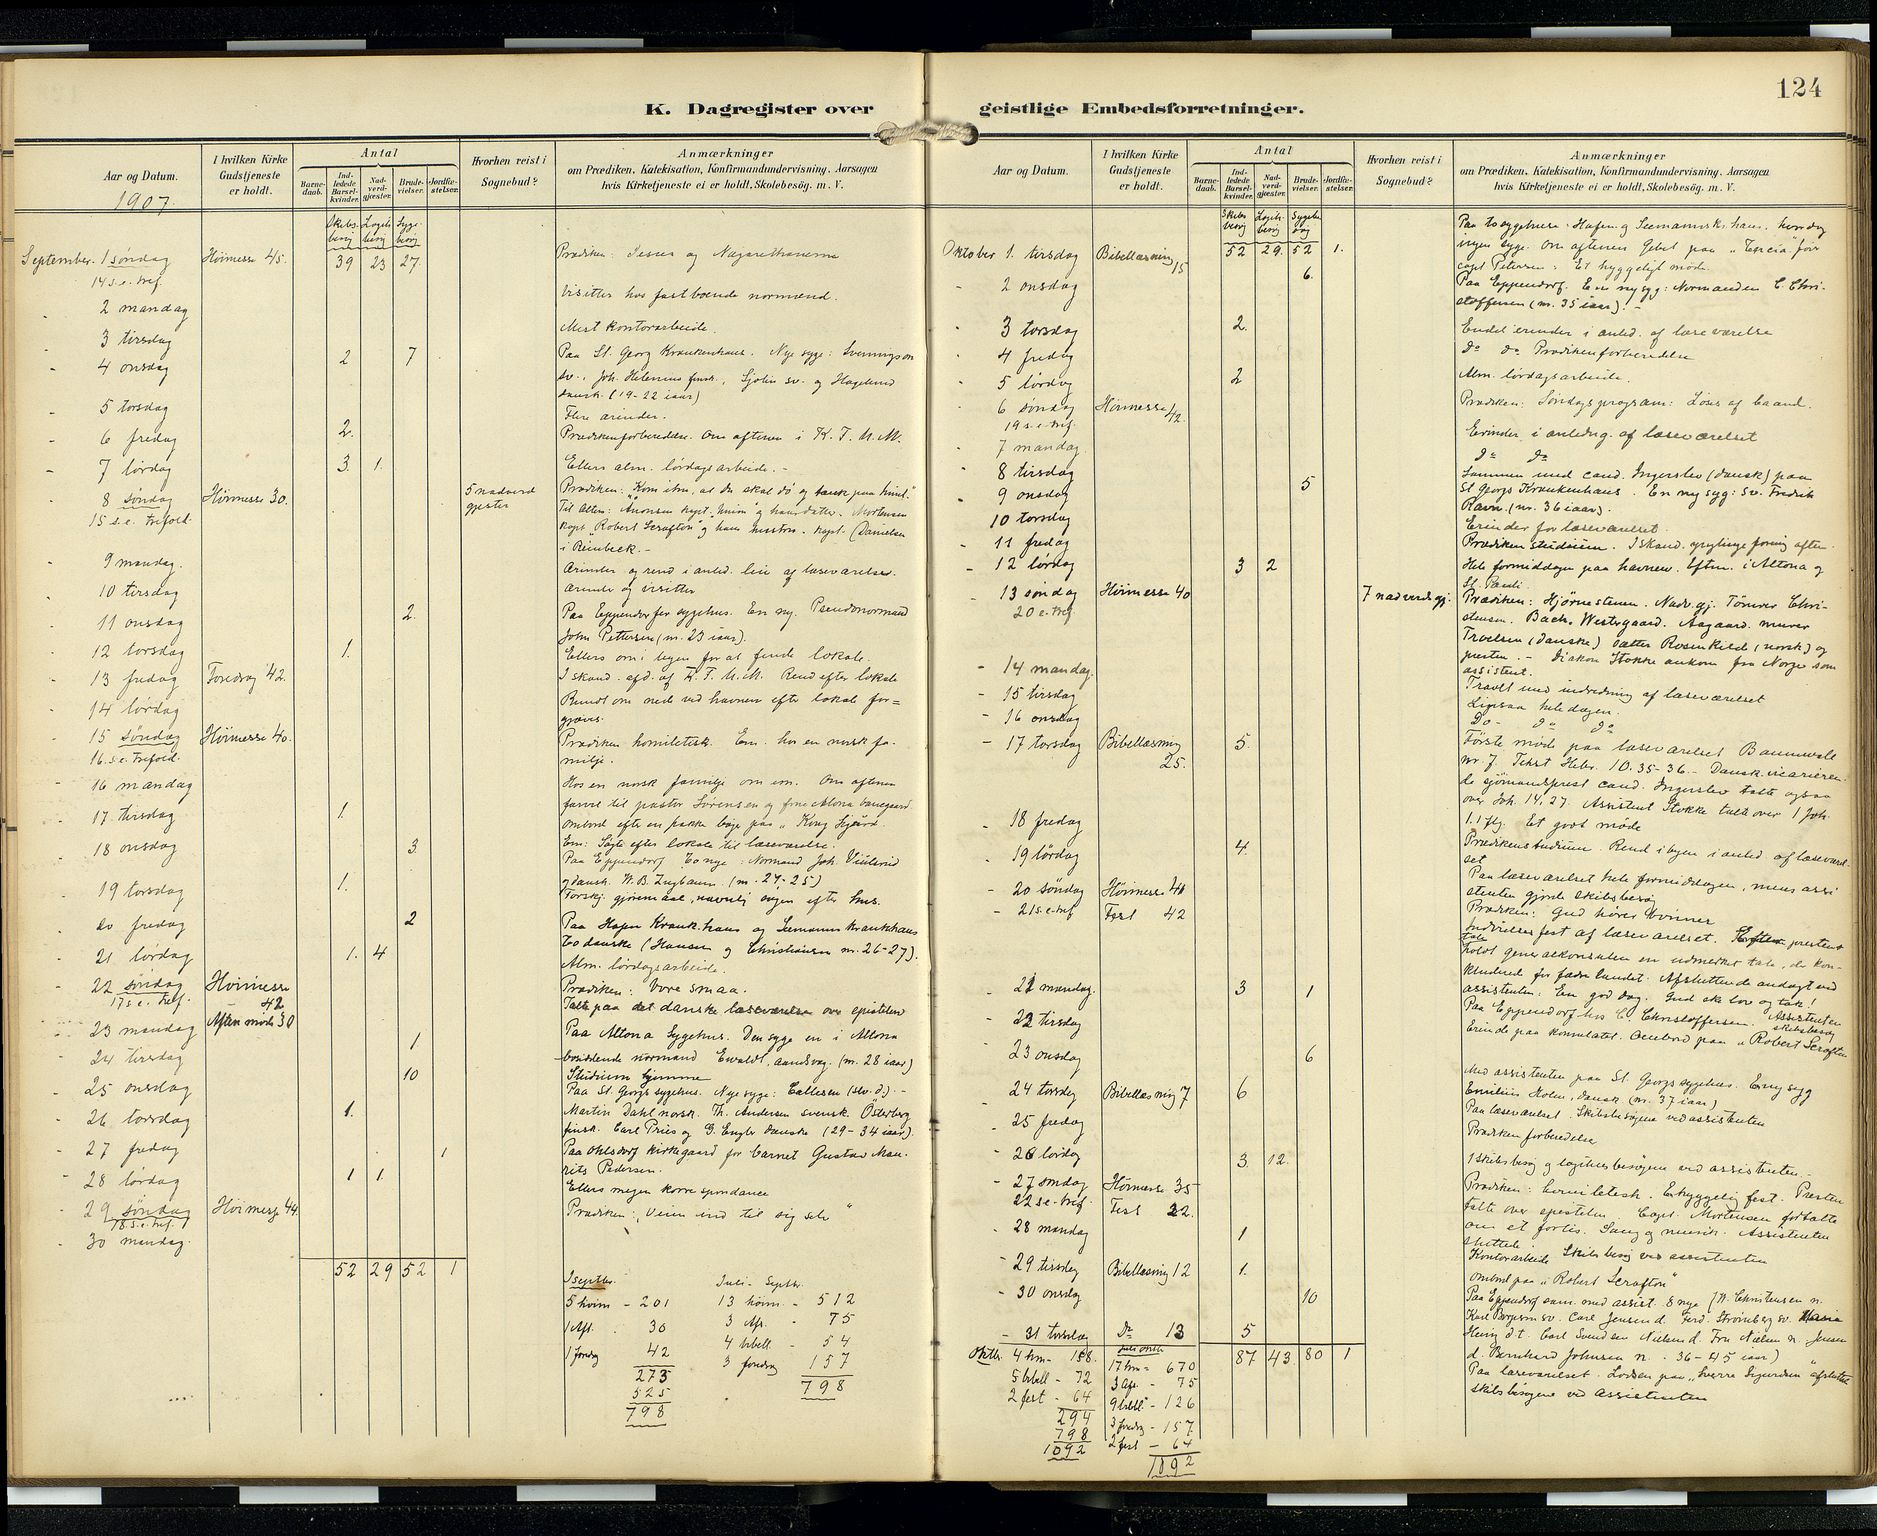 124
K. Dagregister over
geistlige Embedsforretninger.
Aar og Datum.
1907.
I hvilken Kirke
Gudstjeneste
er holdt.
Antal
Barne-
daab.
Ind-
ledede
Barsel-
kvinder.
Nad-
verd-
gjester.
Brude-
vielser.
Jordfæ-
stelser.
Hvorhen reist i
Sognebud?
Anmærkninger
om Prædiken, Katekisation, Konfirmandundervisning, Aarsagen
hvis Kirketjeneste ei er holdt, Skolebesøg, m. V.
Skibs- Logih. Syge-
besøg besøg besøg
September. 1 søndag Høimesse 45. 39 23 27 Prædiken: Jesus og Nazarethanerne
14 s. e. tref.
2 mandag Visitter hos fastboende normænd.
3 tirsdag Mest kontorarbeide.
4 onsdag 2 7 Paa St. Georg Krankenhaus. Nye syge: Svenningson
sv., Joh. Helenius finsk., Sjølin sv. og Hagelund
dansk. (19-22 iaar)
5 torsdag Flere ærinder.
6 fredag 2. Prædikenforberedelse. Om aftenen i K. F. U. M.
7 lørdag 3. 1. Ellers alm. lørdagsarbeide. -
8 søndag Høimesse 30. 5 nadverd Prædiken: "Kom ihu, at du skal dø og tænk paa himl."
15 s. e. trefold. gjester Til Alters: Anonsen kapt. "Unim" og hans datter. Mortensen
kapt. "Robert Scrafton" og hans hustru. kapt. Danielsen
i Reinbeck. -
9 mandag. Ærinder og rend i anled. leie af læseværelse.
10 tirsdag Ærinder og visitter
11 onsdag 2. Paa Eppendorfer sygehus. En ny. Pseudonormand
John Pettersen (nr. 23 iaar).
12 torsdag 1. Ellers om i byen for at finde lokale.
13 fredag Foredrag 42. I skand. afd. af K. F. U. M. Rend efter lokale
14 lørdag Rundt om nede ved havnen efter lokale for-
gjæves.
15 søndag Høimesse 40. Prædiken homiletisk. Em. hos en norsk fa-
16. s. e. trefold. milje.
16 mandag Hos en norsk familje om em. Om aftenen
17 tirsdag 1. farvel til pastor Sørensen og frue Altona
ombord efter en pakke bøger paa "Kong Sigurd".
18 onsdag 3. Em: Søgte efter lokale til læseværelse.
Paa Eppendorf. To nye: Normand Joh.
og dansk. W. B. Zugbaum. (nr. 24-25)
19 torsdag 1. Forskj. gjøremaal, navnlig søgen efter hus.
20 fredag 2 Paa Hafen Krank.haus og Seemanns krankhaus
To danske (Hansen og Christiansen nr. 26-27).
21 lørdag 1. 4 Alm. lørdagsarbeide.
22 søndag Høimesse Prædiken: Vore smaa.
17 s. e. tref. 42 Talte paa det danske læseværelse over epistelen
23 mandag Aften møde 30 Paa Altona Sygehus. Den syge en i Altona
24 tirsdag 1 bosiddende normand Ewaldt, aandsvag. (nr. 28 iaar)
Studium hjemme
25 onsdag 10 Paa St. Georgs sygehus. Nye syge: Callesen (slv. d.) -
26 torsdag 1. Martin Dahl norsk. Th. Andersen svensk. Österberg
finsk. Carl Pries og G. Engler danske (29-34 iaar).
27 fredag 1 Paa Ohlsdorf kirkegaard for barnet Gustav Mau-
rits Pedersen.
28 lørdag 1 1. Ellers megen korrespondance
29 søndag Høimesse 44. Prædiken: "Veien ind til sig selv"
18 s. e. tref.
30 mandag.
52 29 52 1
I septbr. Juli - Septbr.
5 høim - 201 13 høim. - 512
1 Aft. 30 3 Af. - 75
1 foredrag 42 4 bibell - 54
273 3 foredrag 157
525 798
798
Aar og Datum.
I hvilken Kirke
Gudstjeneste
er holdt.
Antal
Barne-
daab.
Ind-
ledede
Barsel-
kvinder.
Nad-
verd-
gjester.
Brude-
vielser.
Jordfæ-
stelser.
Hvorhen reist i
Sognebud?
Anmærkninger
om Prædiken, Katekisation, Konfirmandundervisning, Aarsagen
hvis Kirketjeneste ei er holdt, Skolebesøg, m. V.
Skibs Logih. Syge
besøg besøg besøg
Paa to sygehuse: Hafen og Seemannskr.haus, hvordog
Oktober 1. tirsdag Bibellæsning 15 52 29. 52 1. ingen syge. Om aftenen Gebet paa "Tercia" før
capt. Petersen: Et hyggeligt møde.
2 onsdag 6. Paa Eppendorf. En ny syg: Normanden C. Chri-
stoffersen (nr. 35 iaar). -
3 torsdag 2. Endel ærinder i anled. af læseværelse
4 fredag Do Do Prædikenforberedelse
5 lørdag 2 Alm. lørdagsarbeide.
6 søndag Høimesse 42. Prædiken: Søndagsprogram: Løses af baand.
19 s. e. tref.
7 mandag Ærinder i anledng. af læseværelset
8 tirsdag Do Do
9 onsdag 5 Sammen med cand. Ingerslev (dansk) paa
St Georgs Krankenhaus. En ny syg: Sv. Fredrik
Ravn. (nr. 36 iaar).
10 torsdag Ærinder for læseværelset.
11 fredag Prædikenstudium. I skand. ynglinge foreng aften.
12 lørdag 3 2 Hele formiddagen paa havnen. Eftm. i Altona og
St. Pauli.
13 søndag Høimesse 40 7 nadverdsgj. Prædiken: Hjørnestenen. Nadv.gj. Tømrer Chri-
20 e. tref stensen. Bach. Westergaard. Aagaard. murer
Troelsen (danske) Søster Rosenkild (norsk) og
presten. - Diakon Stokke ankom fra Norge som
assistent.
14 mandag. Travlt med indredning af læseværelset
15 tirsdag Ligesaa hele dagen.
16 onsdag Do - Do Do
17 torsdag Bibellæsning 25. 5. Første møde paa læseværelset Baumwall
nr. 7. Tekst Hebr. 10. 35-36. - Dansk vicarieren-
de sjømandsprest cand. Ingerslev talte ogsaa
over Joh. 14, 27. Assistent Stokke talte over 1 Joh.
1. 1 flg. Et godt møde
18 fredag Prædikenstudium. Rend i byen i anled. af læseværel-
set
19 lørdag 4. Paa læseværelset hele formiddagen, mens assi
stenten gjorde skibsbesøg
20 søndag Høimesse 40 Prædiken: Gud hører bønner
21 s. e. tref Fest 42 Indvielsesfest af læseværelset. Efter prestens
tale holdt generalkonsulen en udmerket tale, der kon-
kluderede for fædrelandet. Afsluttende andagt ved
assistenten. En god dag. Gud ske lov og tak!
21 mandag. 3 1 Paa Eppendorf hos C. Christoffersen. Assistenten
skibsbesøg
22 tirsdag Ærinde paa konsulatet. Ombord paa "Robert Scrafton
23 onsdag 6 Med assistenten paa St. Georgs sygehus. En ny syg
Emilius Holm, dansk (nr. 37 iaar)
24 torsdag Bibellæsning 7 6 Paa læseværelset. Skibsbesøgene ved assistenten
25 fredag Prædiken forberedelse
26 lørdag 3. 12. 1 skibsbesøg og logihusbesøgene ved assistenten -
27 søndag Høimesse 35 Prædiken: homiletisk. En hyggelig fest. Presten
22 s. e. tref. Fest 22. talte over epistelen Capt. Mortensen fortalte
om et forlis. Sang og musik. Assistenten
sluttede.
28 mandag 1 Kontorarbeide Skibsbesøg ved assistenten
29 tirsdag Bibellæsning 12 1. Ombord paa "Robert Scrafton"
30 onsdag 10 Paa Eppendorf sam. med assist. 8 nye (W. Christensen n.
Karl Borgeson sv. Carl Jensen d. Ferd. Strömberg sv. Maria
Heinig d t. Carl Svendsen Nielsen d. Fru Nielsen n. Jensen
d. Bernhard Johnsen n. - 36-45 iaar)
31 torsdag Do 13 5 Paa læseværelset. Lodsen paa "Sverre Sigurdsøn" afsluttet
skibsbesøgene ved assistenten
87 43 80 1
Oktbr. 4 hm - 158. Juli-oktb
5 bibell - 72 17 hm = 670
2 fest - 64 3 afs. - 75
294 9 bibell. - 126
798 3 foredrag - 157.
1092 2 fest - 64
1092